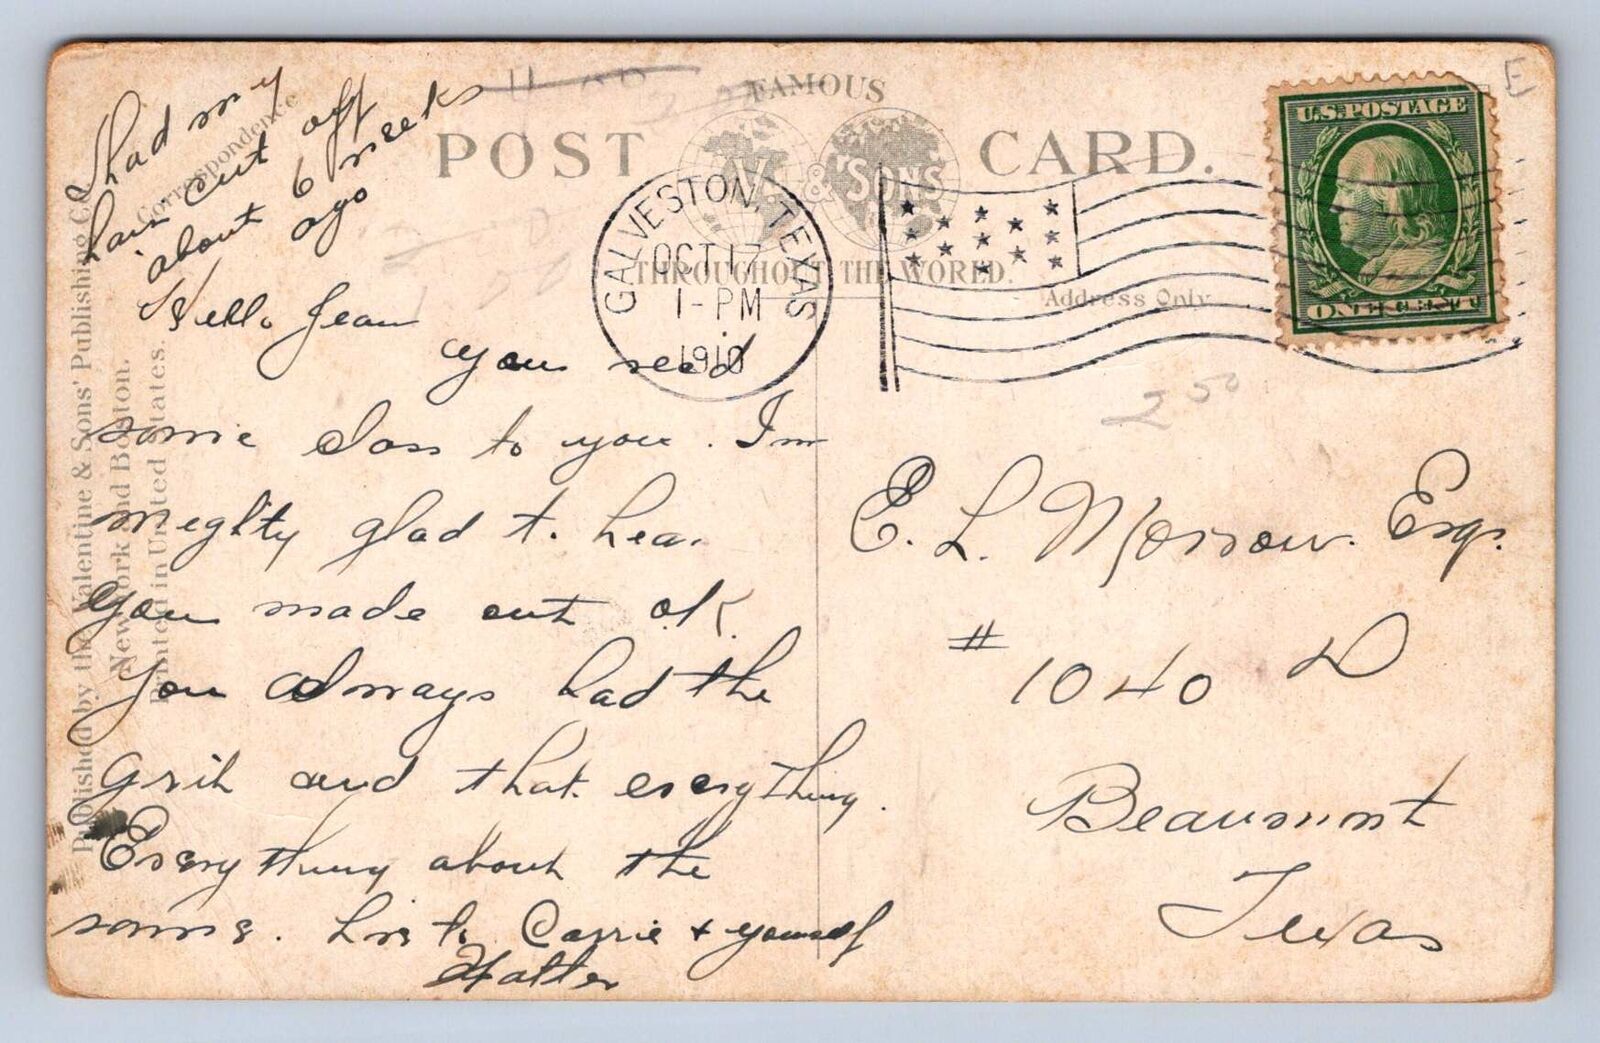 I had my
hair cut off
about 6 weeks
ago
Correspondence
FAMOUS
POST CARD.
& SONS
THROUGHOUT THE WORLD.
Address Only
Published by the Valentine & Sons' Publishing Co.
New York and Boston.
Printed in United States.
GALVESTON, TEXAS
OCT 17
1-PM
1910
U.S. POSTAGE
ONE CENT
E
2 50
Hello Jean
you
some class to you. I'm
meghty glad to hear
you made out O.K.
you always had the
Grit and that everything.
Everything about the
same. Love to Carrie + yourself
Walter
E. L. Morrow. Esq.
# 1040 D
Beaumont
Texas